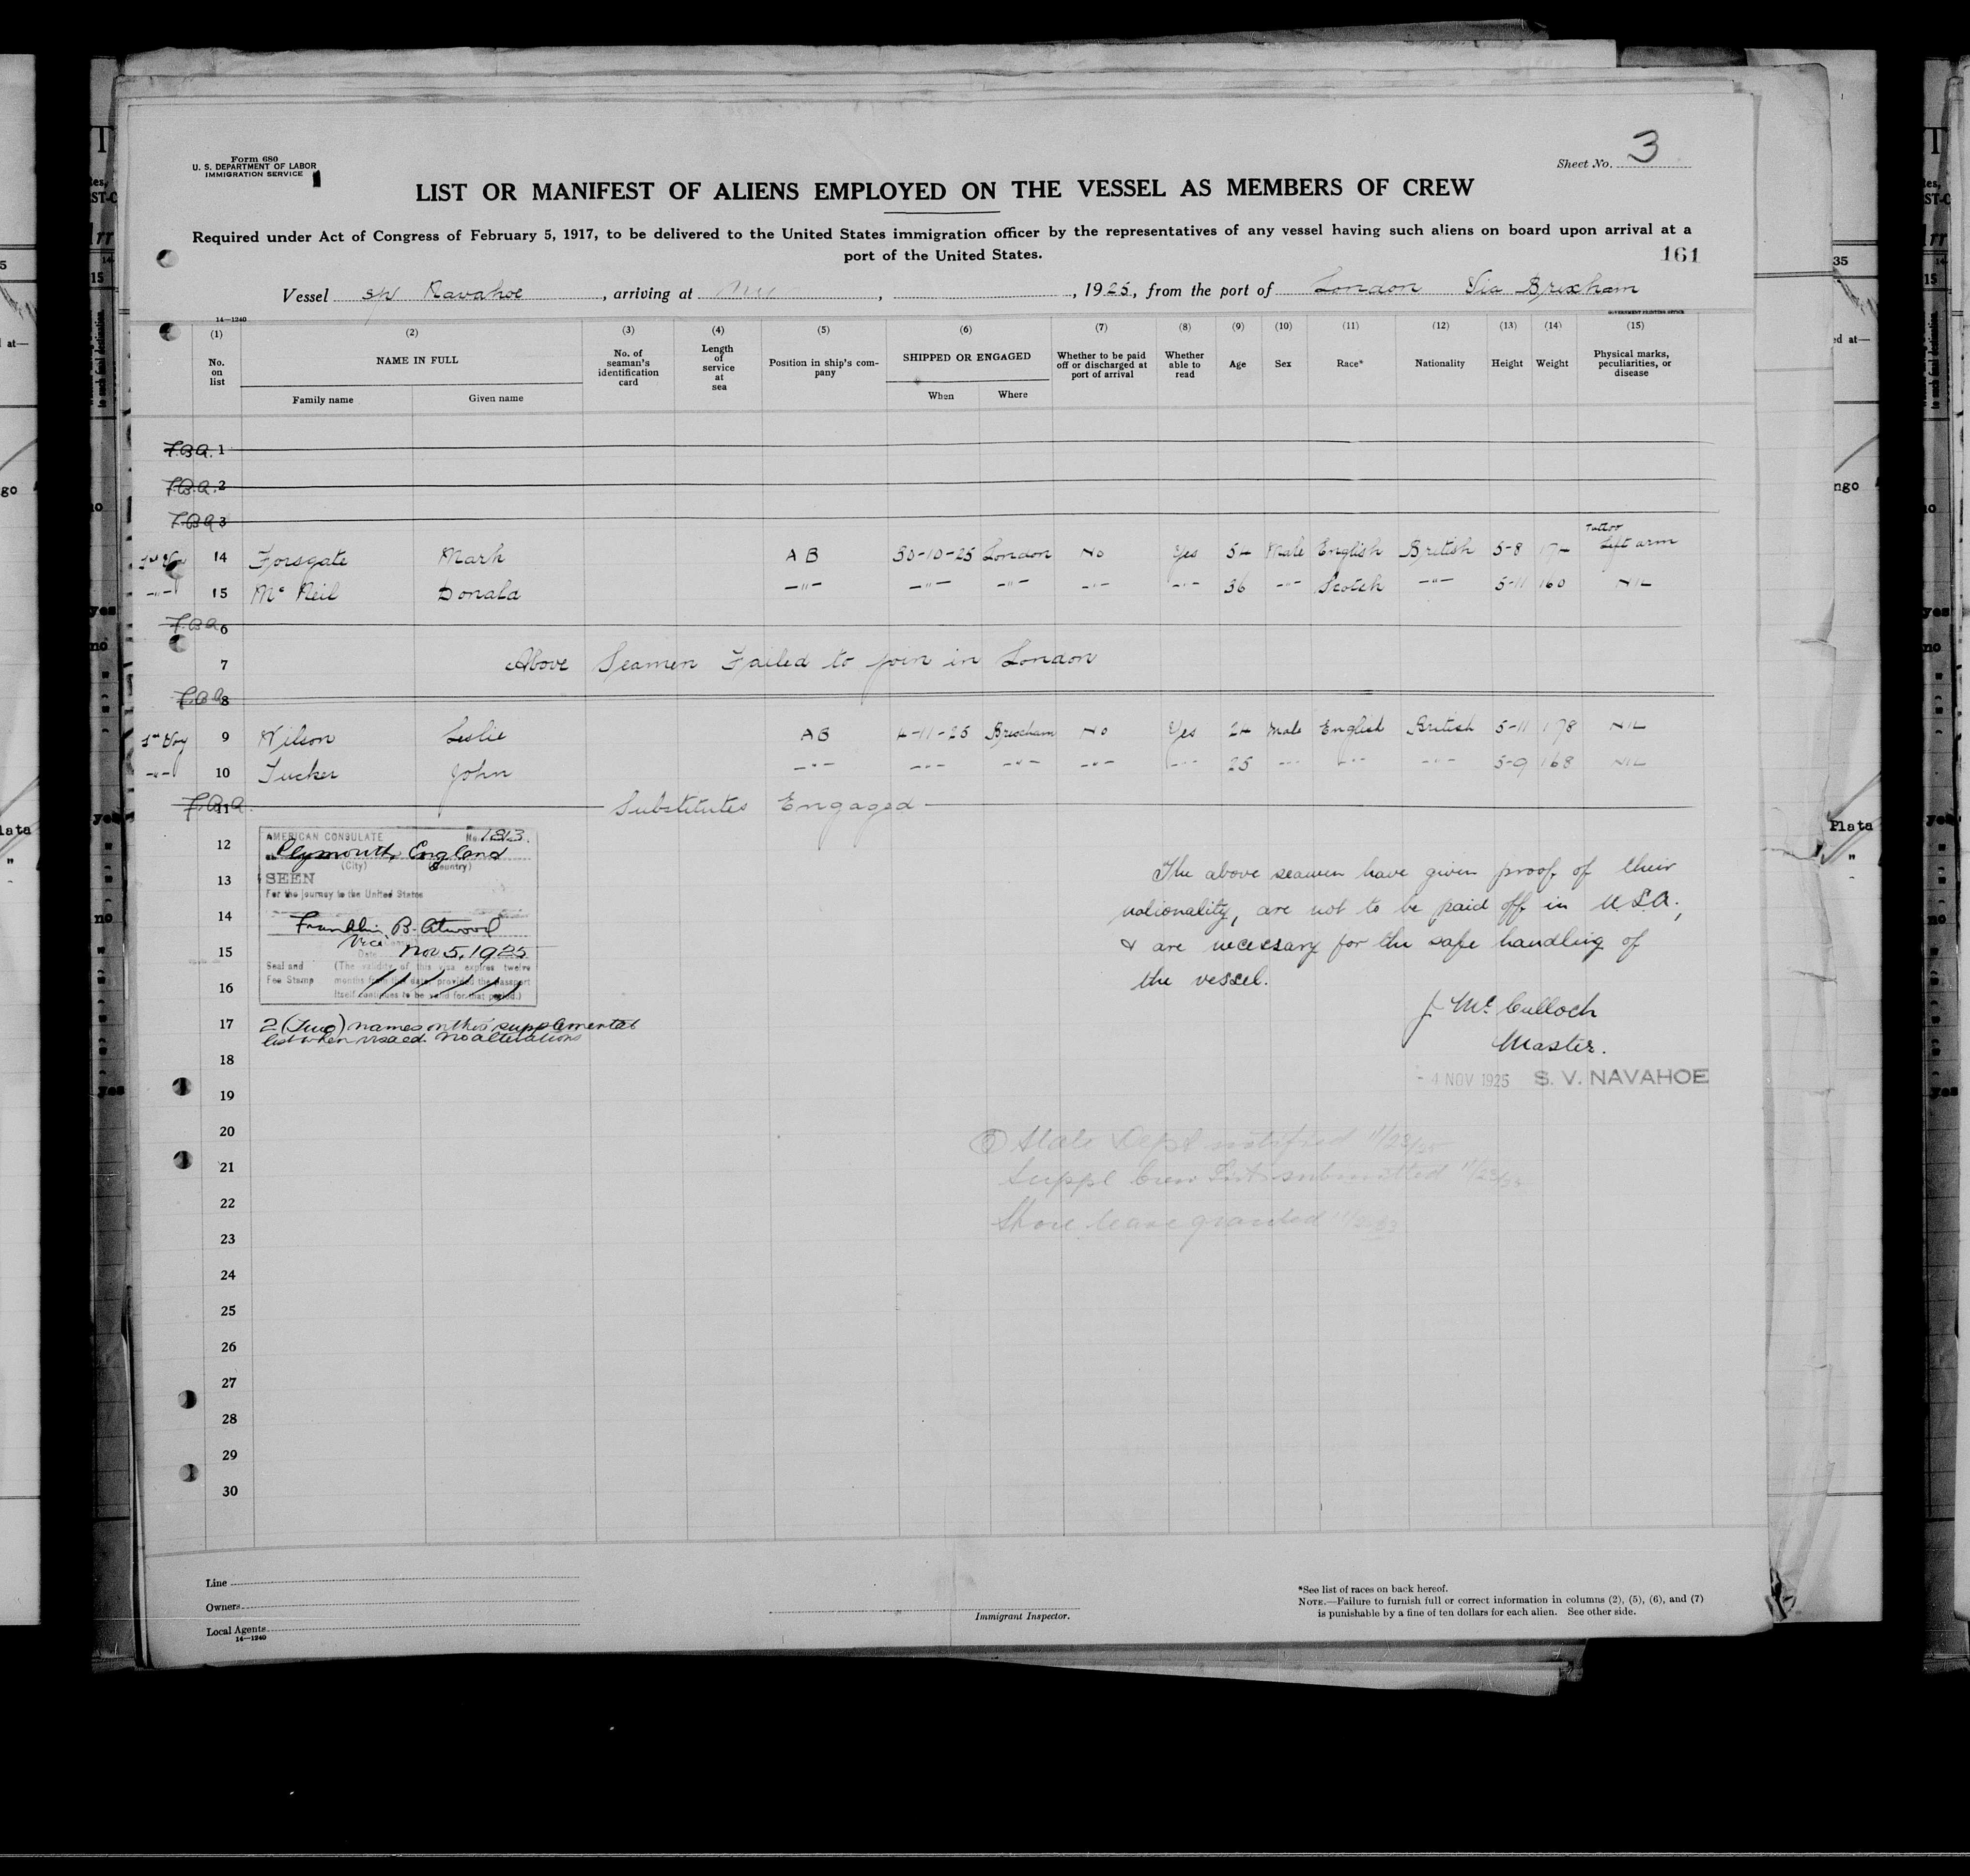 Form 680
U. S. DEPARTMENT OF LABOR
IMMIGRATION SERVICE
Sheet No. 3
LIST OR MANIFEST OF ALIENS EMPLOYED ON THE VESSEL AS MEMBERS OF CREW
Required under Act of Congress of February 5, 1917, to be delivered to the United States immigration officer by the representatives of any vessel having such aliens on board upon arrival at a
port of the United States.
161
Vessel Navahoe, arriving at , , 1925, from the port of London Via Brixham
14—1240
GOVERNMENT PRINTING OFFICE
(1) (2) (3) (4) (5) (6) (7) (8) (9) (10) (11) (12) (13) (14) (15)
No. on list NAME IN FULL No. of seaman's identification card Length of service at sea Position in ship's company SHIPPED OR ENGAGED Whether to be paid off or discharged at port of arrival Whether able to read Age Sex Race* Nationality Height Weight Physical marks, peculiarities, or disease
Family name Given name When Where
F.B.A. 1
F.B.A. 2
F.B.A. 3
1st Voy 14 Forsgate Mark A B 30-10-25 London No Yes 54 Male English British 5-8 174 Tattoo Left arm
-"- 15 Mc Neil Donald -"- -"- -"- -"- -"- 36 -"- Scotch -"- 5-11 160 NIL
F.B.A. 6
7 Above Seamen Failed to join in London
F.B.A. 8
1st Voy 9 Wilson Leslie A B 4-11-25 Brixham No Yes 24 Male English British 5-11 178 NIL
-"- 10 Tucker John -"- -"- -"- -"- -"- 25 -"- -"- -"- 5-9 168 NIL
F.B.A. 11 Substitutes Engaged
12
13
14
15
16
17
18
19
20
21
22
23
24
25
26
27
28
29
30
AMERICAN CONSULATE No. 1813.
at Plymouth, England
(City) (Country)
SEEN
For the journey to the United States
Franklin B. Atwood
Vice
Date Nov 5, 1925
Seal and Fee Stamp
(The validity of this visa expires twelve
months from this date, provided the passport
itself continues to be valid for that period.)
2 (Two) names on this supplemental
list when visaed. No alterations
The above seamen have given proof of their
nationality, are not to be paid off in U.S.A.,
& are necessary for the safe handling of
the vessel.
J. Mc Culloch
Master.
- 4 NOV 1925 S. V. NAVAHOE
State Dept notified 11/23/25
Suppl Crew List submitted 11/23/25
Shore leave granted
Line
Owners
Local Agents
14—1240
Immigrant Inspector.
*See list of races on back hereof.
NOTE.—Failure to furnish full or correct information in columns (2), (5), (6), and (7)
is punishable by a fine of ten dollars for each alien. See other side.
Plata